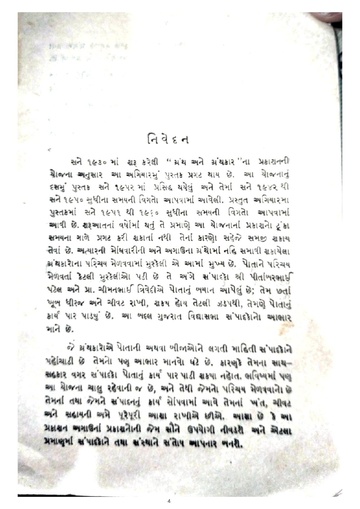 નિવેદન
સને ૧૯૩૦ માં શરૂ કરેલી “ગ્રંથ અને ગ્રંથકાર”ના પ્રકાશનની
યોજના અનુસાર આ અગિયારમું પુસ્તક પ્રગટ થાય છે. આ યોજનાનું
દસમું પુસ્તક સને ૧૯૫૨ માં પ્રસિદ્ધ થયેલું અને તેમાં સને ૧૯૪૨ થી
સને ૧૯૫૦ સુધીના સમયની વિગતો આપવામાં આવેલી. પ્રસ્તુત અગિયારમા
પુસ્તકમાં સને ૧૯૫૧ થી ૧૯૬૦ સુધીના સમયની વિગતો આપવામાં
આવી છે. શરૂઆતનાં વર્ષોમાં થતું તે પ્રમાણે આ યોજનાનાં પ્રકાશનો ટૂંકા
સમયના ગાળે પ્રગટ કરી શકાતાં નથી તેનાં કારણો સહેજે સમજી શકાય
તેવાં છે. અત્યારની મોંઘવારીની અને અગાઉના ગ્રંથોમાં નહિ સમાવી શકાયેલા
ગ્રંથકારોના પરિચય મેળવવામાં મુશ્કેલી એ આમાં મુખ્ય છે. પોતાને પરિચય
મેળવતાં કેટલી મુશ્કેલીઓ પડી છે તે અંગે સંપાદકો શ્રી પીતાંબરભાઈ
પટેલ અને પ્રા. ચીમનભાઈ ત્રિવેદીએ પોતાનું બયાન આપેલું છે; તેમ છતાં
ખૂબ ધીરજ અને ચીવટ રાખી, શક્ય હોય તેટલી ઝડપથી, તેમણે પોતાનું
કાર્ય પાર પાડ્યું છે. આ બદલ ગુજરાત વિદ્યાસભા સંપાદકોનો આભાર
માને છે.
જે ગ્રંથકારોએ પોતાની અથવા બીજાઓને લગતી માહિતી સંપાદકોને
પહોંચાડી છે તેમનો પણ આભાર માનવો ઘટે છે. કારણકે તેમના સાથ-
સહકાર વગર સંપાદકો પોતાનું કાર્ય પાર પાડી શકત નહીંત. ભવિષ્યમાં પણ
આ યોજના ચાલુ રહેવાની જ છે, અને તેથી જેમનો પરિચય મેળવવાનો છે
તેમનાં તથા જેમને સંપાદનનું કાર્ય સોંપવામાં આવે તેમનાં ખંત, ચીવટ
અને સહાયની અમે પૂરેપૂરી આશા રાખીએ છીએ. આશા છે કે આ
પ્રકાશન અગાઉનાં પ્રકાશનોની જેમ સૌને ઉપયોગી નીવડશે અને એટલા
પ્રમાણમાં સંપાદકોને તથા સંસ્થાને સંતોષ આપનાર બનશે.
4